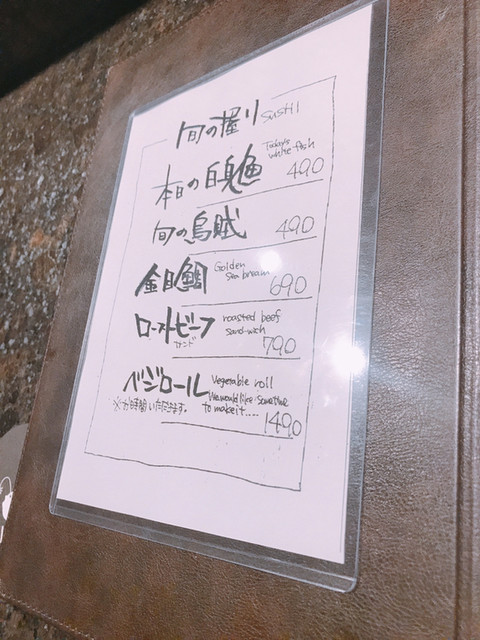 旬の握り SUSHI
本日の白身魚 Today's white fish 490
旬の烏賊 490
金目鯛 Golden sea bream 690
ローストビーフ サンド roasted beef sand-wich 790
ベジロール Vegetable roll We would like sometime to make it....
※お時間いただきます。 1490